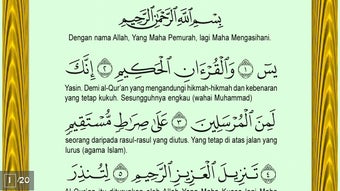 بِسْمِ اللَّهِ الرَّحْمَٰنِ الرَّحِيمِ
Dengan nama Allah, Yang Maha Pemurah, lagi Maha Mengasihani.
يسٓ ﴿١﴾ وَالْقُرْءَانِ الْحَكِيمِ ﴿٢﴾ إِنَّكَ
Yasin. Demi al-Qur'an yang mengandungi hikmah-hikmah dan kebenaran
yang tetap kukuh. Sesungguhnya engkau (wahai Muhammad)
لَمِنَ الْمُرْسَلِينَ ﴿٣﴾ عَلَىٰ صِرَاطٍ مُّسْتَقِيمٍ
seorang daripada rasul-rasul yang diutus. Yang tetap di atas jalan yang
lurus (agama Islam).
﴿٤﴾ تَنزِيلَ الْعَزِيزِ الرَّحِيمِ ﴿٥﴾ لِتُنذِرَ
1 /20